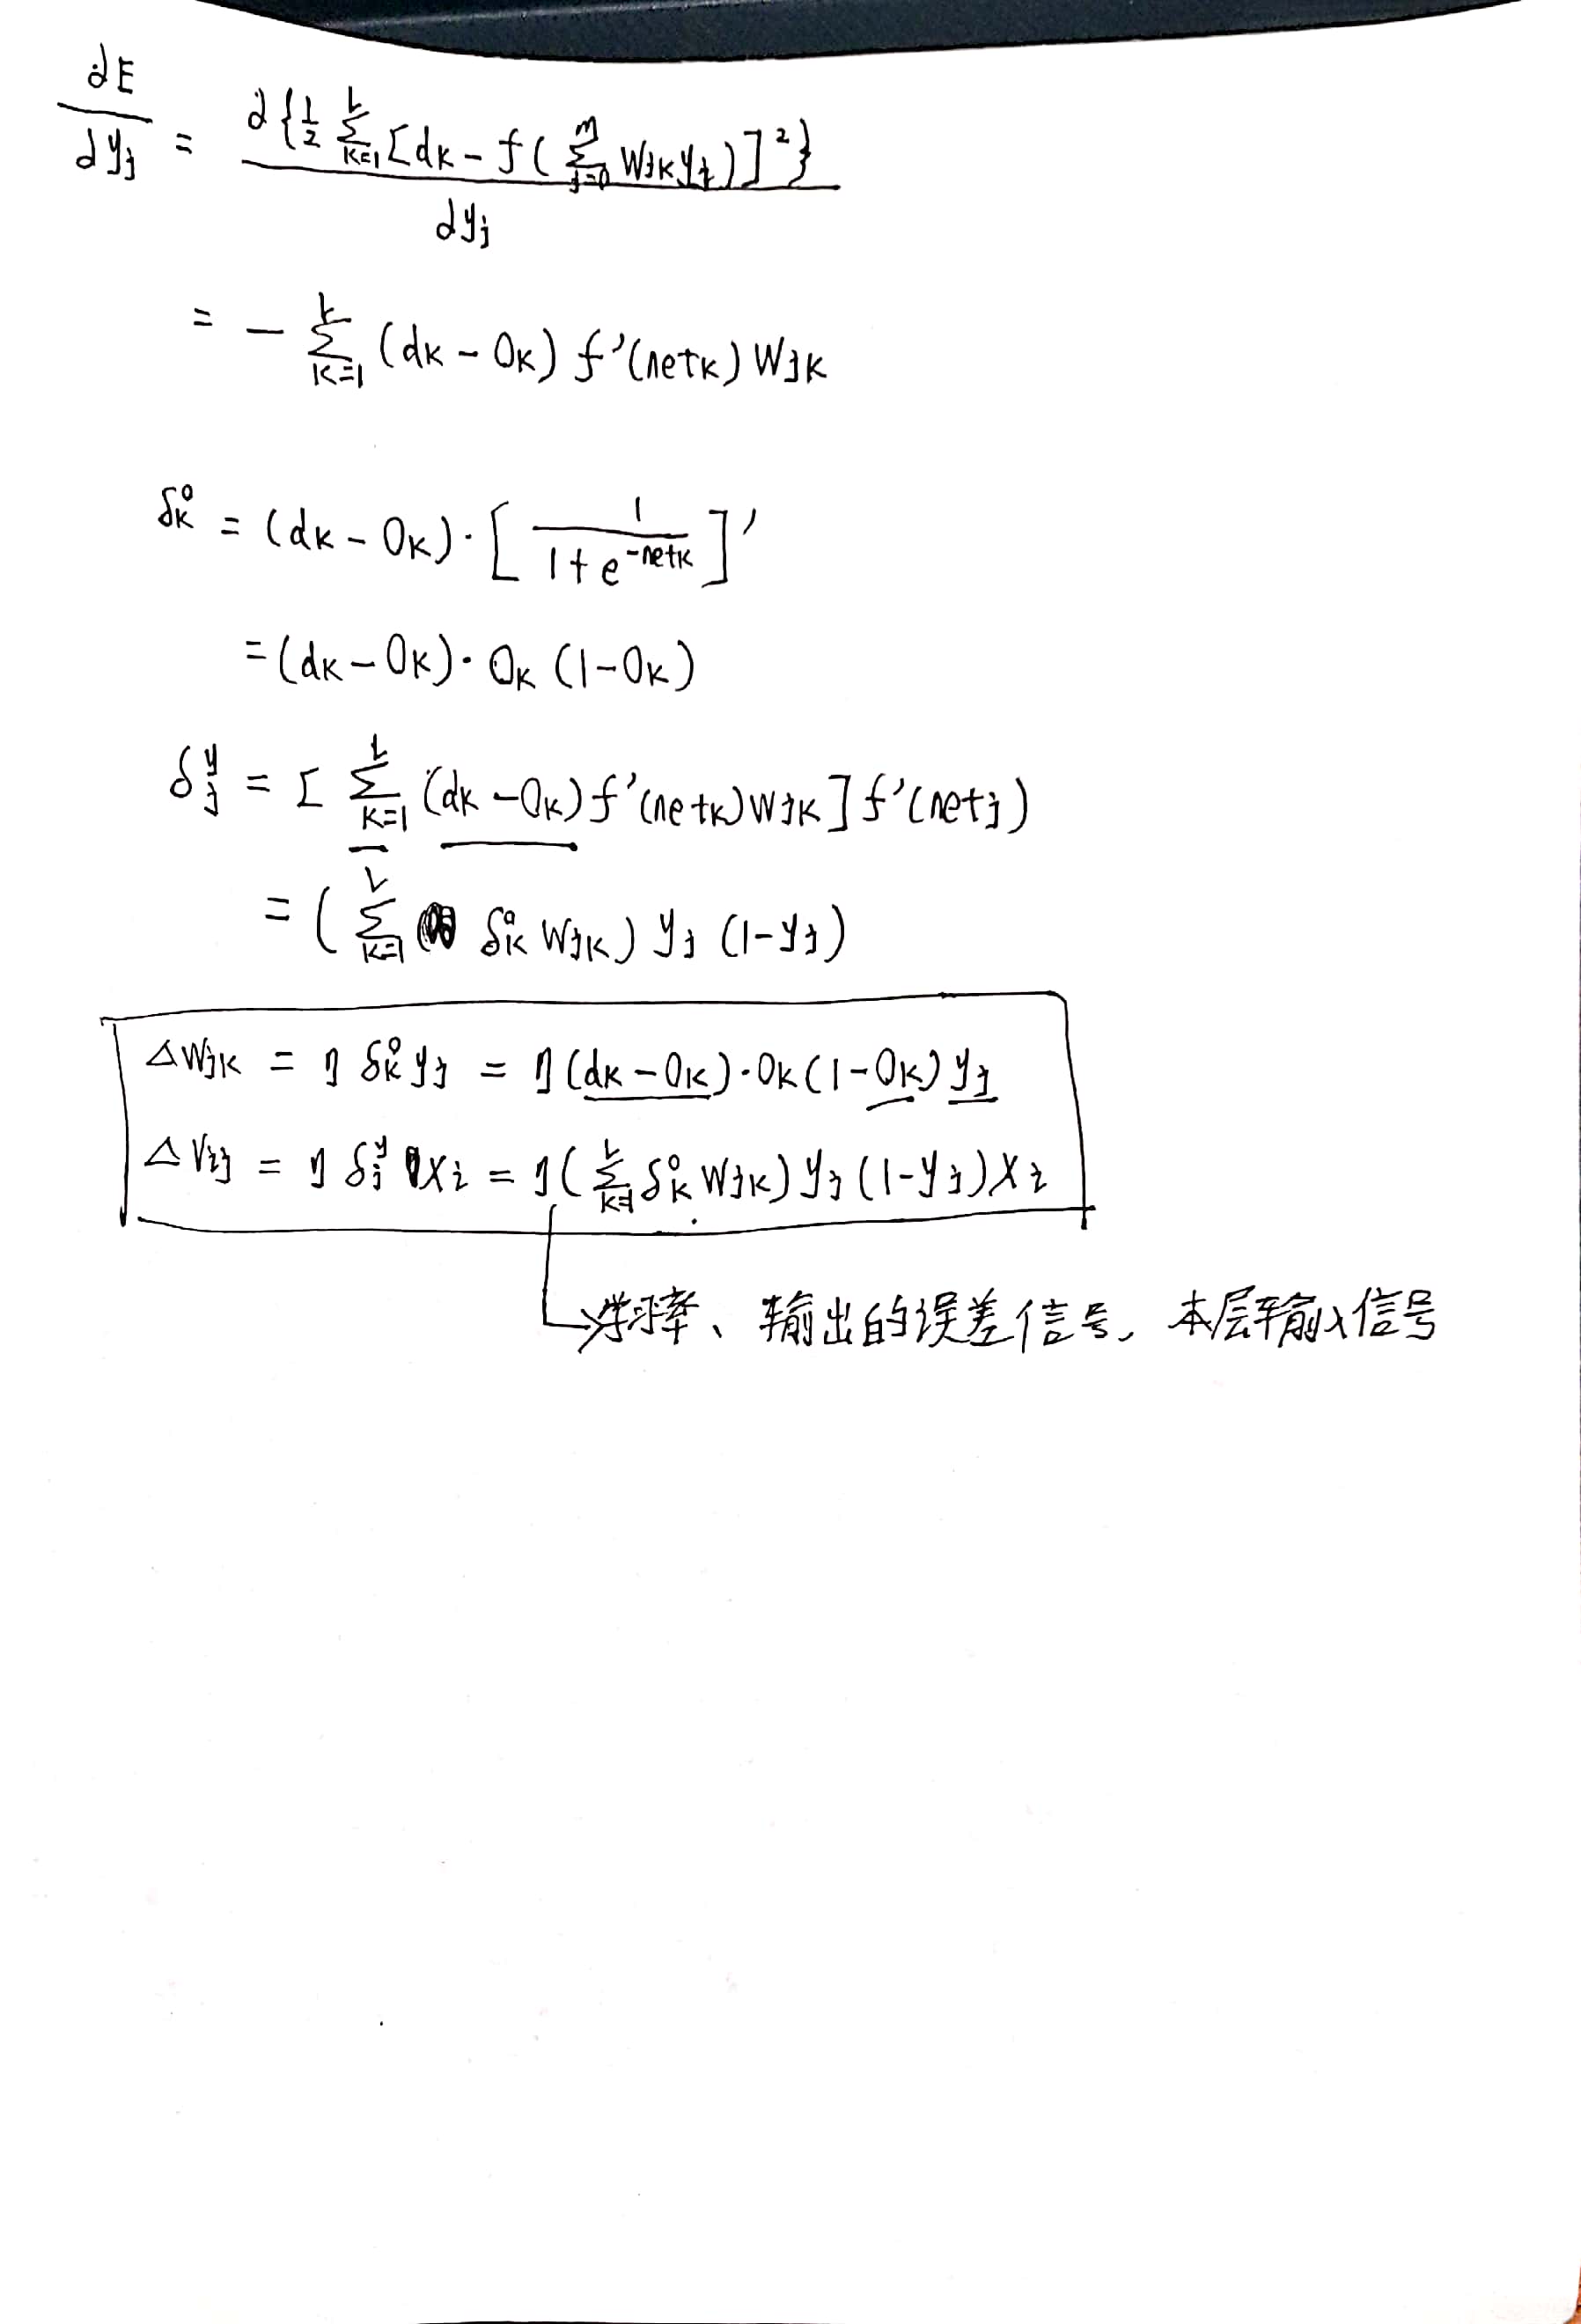 ∂E/∂yj = ∂{1/2 Σ_{k=1}^{L} [dk - f(Σ_{j=0}^{m} Wjk yj)]²} / ∂yj
= - Σ_{k=1}^{L} (dk - Ok) f'(netk) Wjk
δk^o = (dk - Ok)·[1/(1+e^{-netk})]'
= (dk - Ok)·Ok (1-Ok)
δj^y = [Σ_{k=1}^{L} (dk - Ok) f'(netk) Wjk] f'(netj)
= (Σ_{k=1}^{L} δk^o Wjk) yj (1-yj)
△Wjk = η δk^o yj = η(dk - Ok)·Ok(1-Ok) yj
△Vij = η δj^y Xi = η(Σ_{k=1}^{L} δk^o Wjk) yj (1-yj) Xi
学习率、输出的误差信号, 本层输入信号